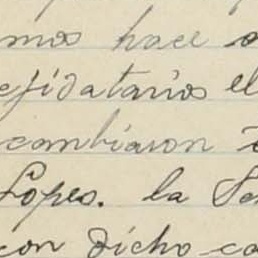 mos hace
ejidatarios el
cambiaron
Lopes. la
con dicho